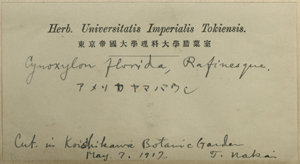 Herb. Universitatis Imperialis Tokiensis.
東京帝國大學理科大學腊葉室
Cynoxylon florida, Rafinesque.
アメリカヤマバウシ
Cut. in Koishikawa Botanic Garden
May 7. 1917. T. Nakai